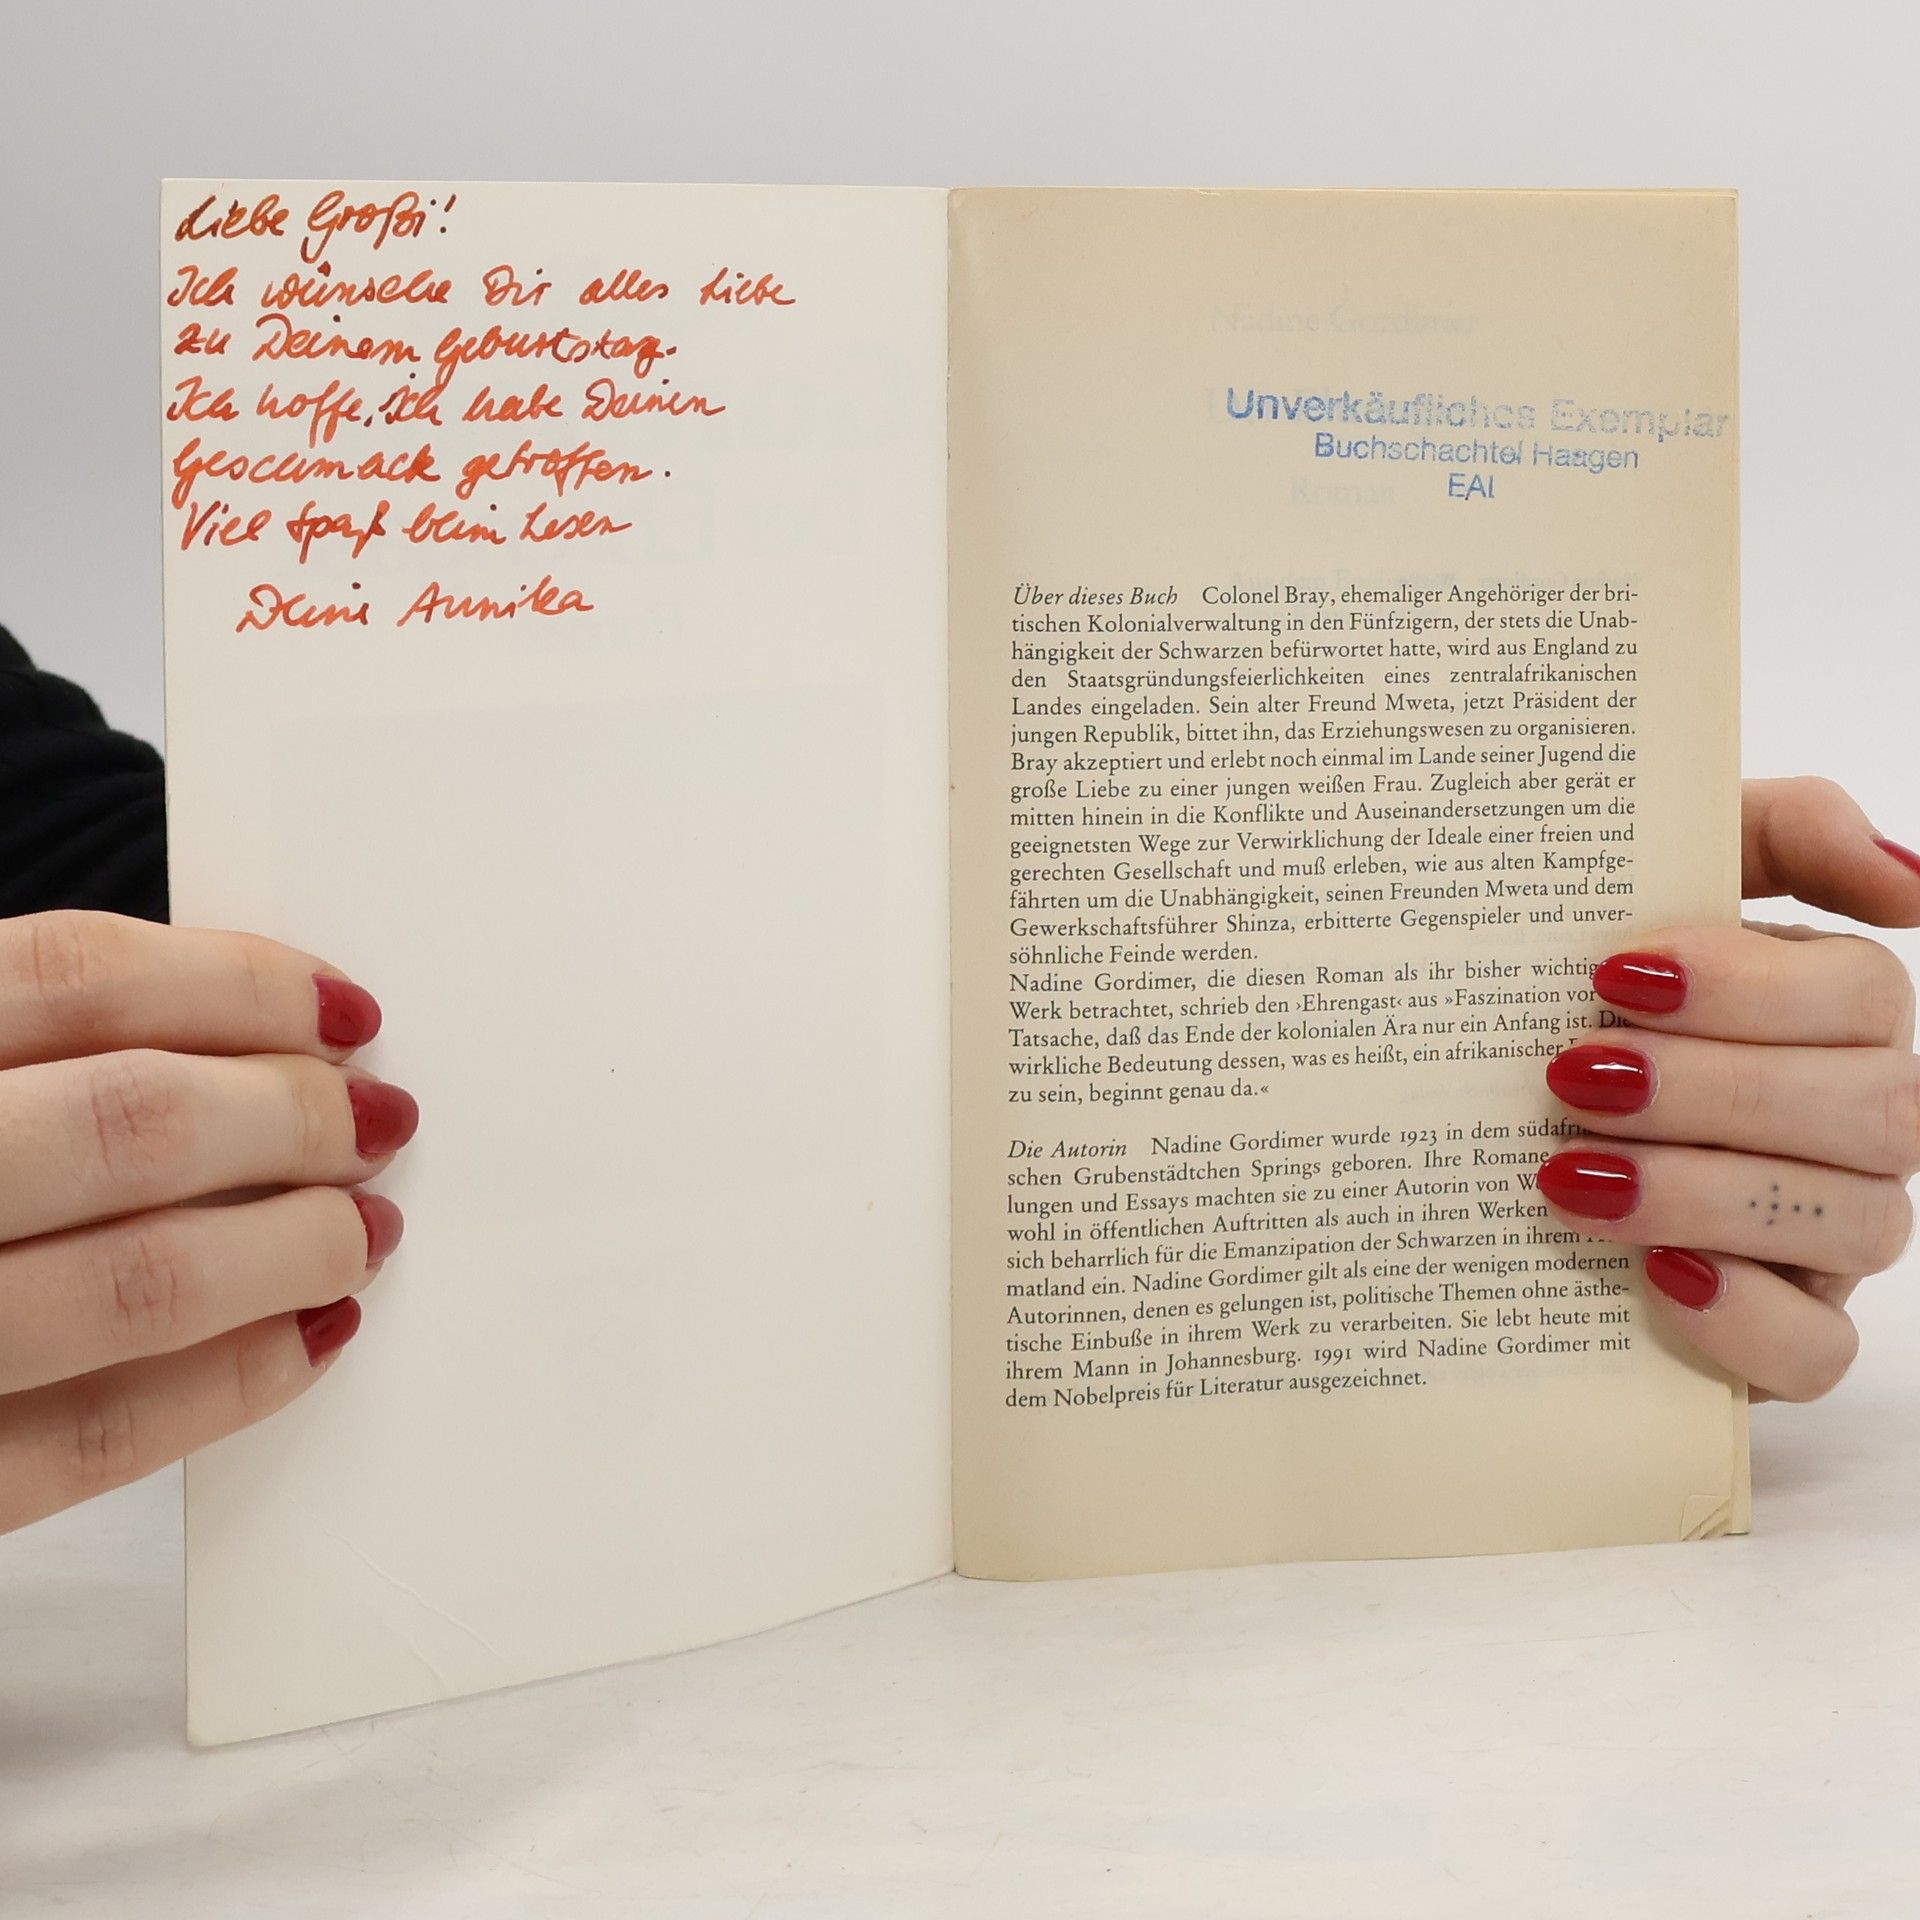 Liebe Großi!
Ich wünsche Dir alles Liebe
zu Deinem Geburtstag.
Ich hoffe, ich habe Deinen
Geschmack getroffen.
Viel Spaß beim Lesen
Deine Annika
Nadine Gordimer
Unverkäufliches Exemplar
Buchschachtel Haagen
EAI
Roman
Über dieses Buch Colonel Bray, ehemaliger Angehöriger der bri-
tischen Kolonialverwaltung in den Fünfzigern, der stets die Unab-
hängigkeit der Schwarzen befürwortet hatte, wird aus England zu
den Staatsgründungsfeierlichkeiten eines zentralafrikanischen
Landes eingeladen. Sein alter Freund Mweta, jetzt Präsident der
jungen Republik, bittet ihn, das Erziehungswesen zu organisieren.
Bray akzeptiert und erlebt noch einmal im Lande seiner Jugend die
große Liebe zu einer jungen weißen Frau. Zugleich aber gerät er
mitten hinein in die Konflikte und Auseinandersetzungen um die
geeignetsten Wege zur Verwirklichung der Ideale einer freien und
gerechten Gesellschaft und muß erleben, wie aus alten Kampfge-
fährten um die Unabhängigkeit, seinen Freunden Mweta und dem
Gewerkschaftsführer Shinza, erbitterte Gegenspieler und unver-
söhnliche Feinde werden.
Nadine Gordimer, die diesen Roman als ihr bisher
Werk betrachtet, schrieb den ›Ehrengast‹ aus »Faszination
Tatsache, daß das Ende der kolonialen Ära nur ein Anfang ist. Die
wirkliche Bedeutung dessen, was es heißt, ein afrikanischer
zu sein, beginnt genau da.«
Die Autorin Nadine Gordimer wurde 1923 in dem
schen Grubenstädtchen Springs geboren. Ihre Romane
lungen und Essays machten sie zu einer Autorin von
wohl in öffentlichen Auftritten als auch in ihren Werken
sich beharrlich für die Emanzipation der Schwarzen in ihrem
matland ein. Nadine Gordimer gilt als eine der wenigen modernen
Autorinnen, denen es gelungen ist, politische Themen ohne ästhe-
tische Einbuße in ihrem Werk zu verarbeiten. Sie lebt heute mit
ihrem Mann in Johannesburg. 1991 wird Nadine Gordimer mit
dem Nobelpreis für Literatur ausgezeichnet.